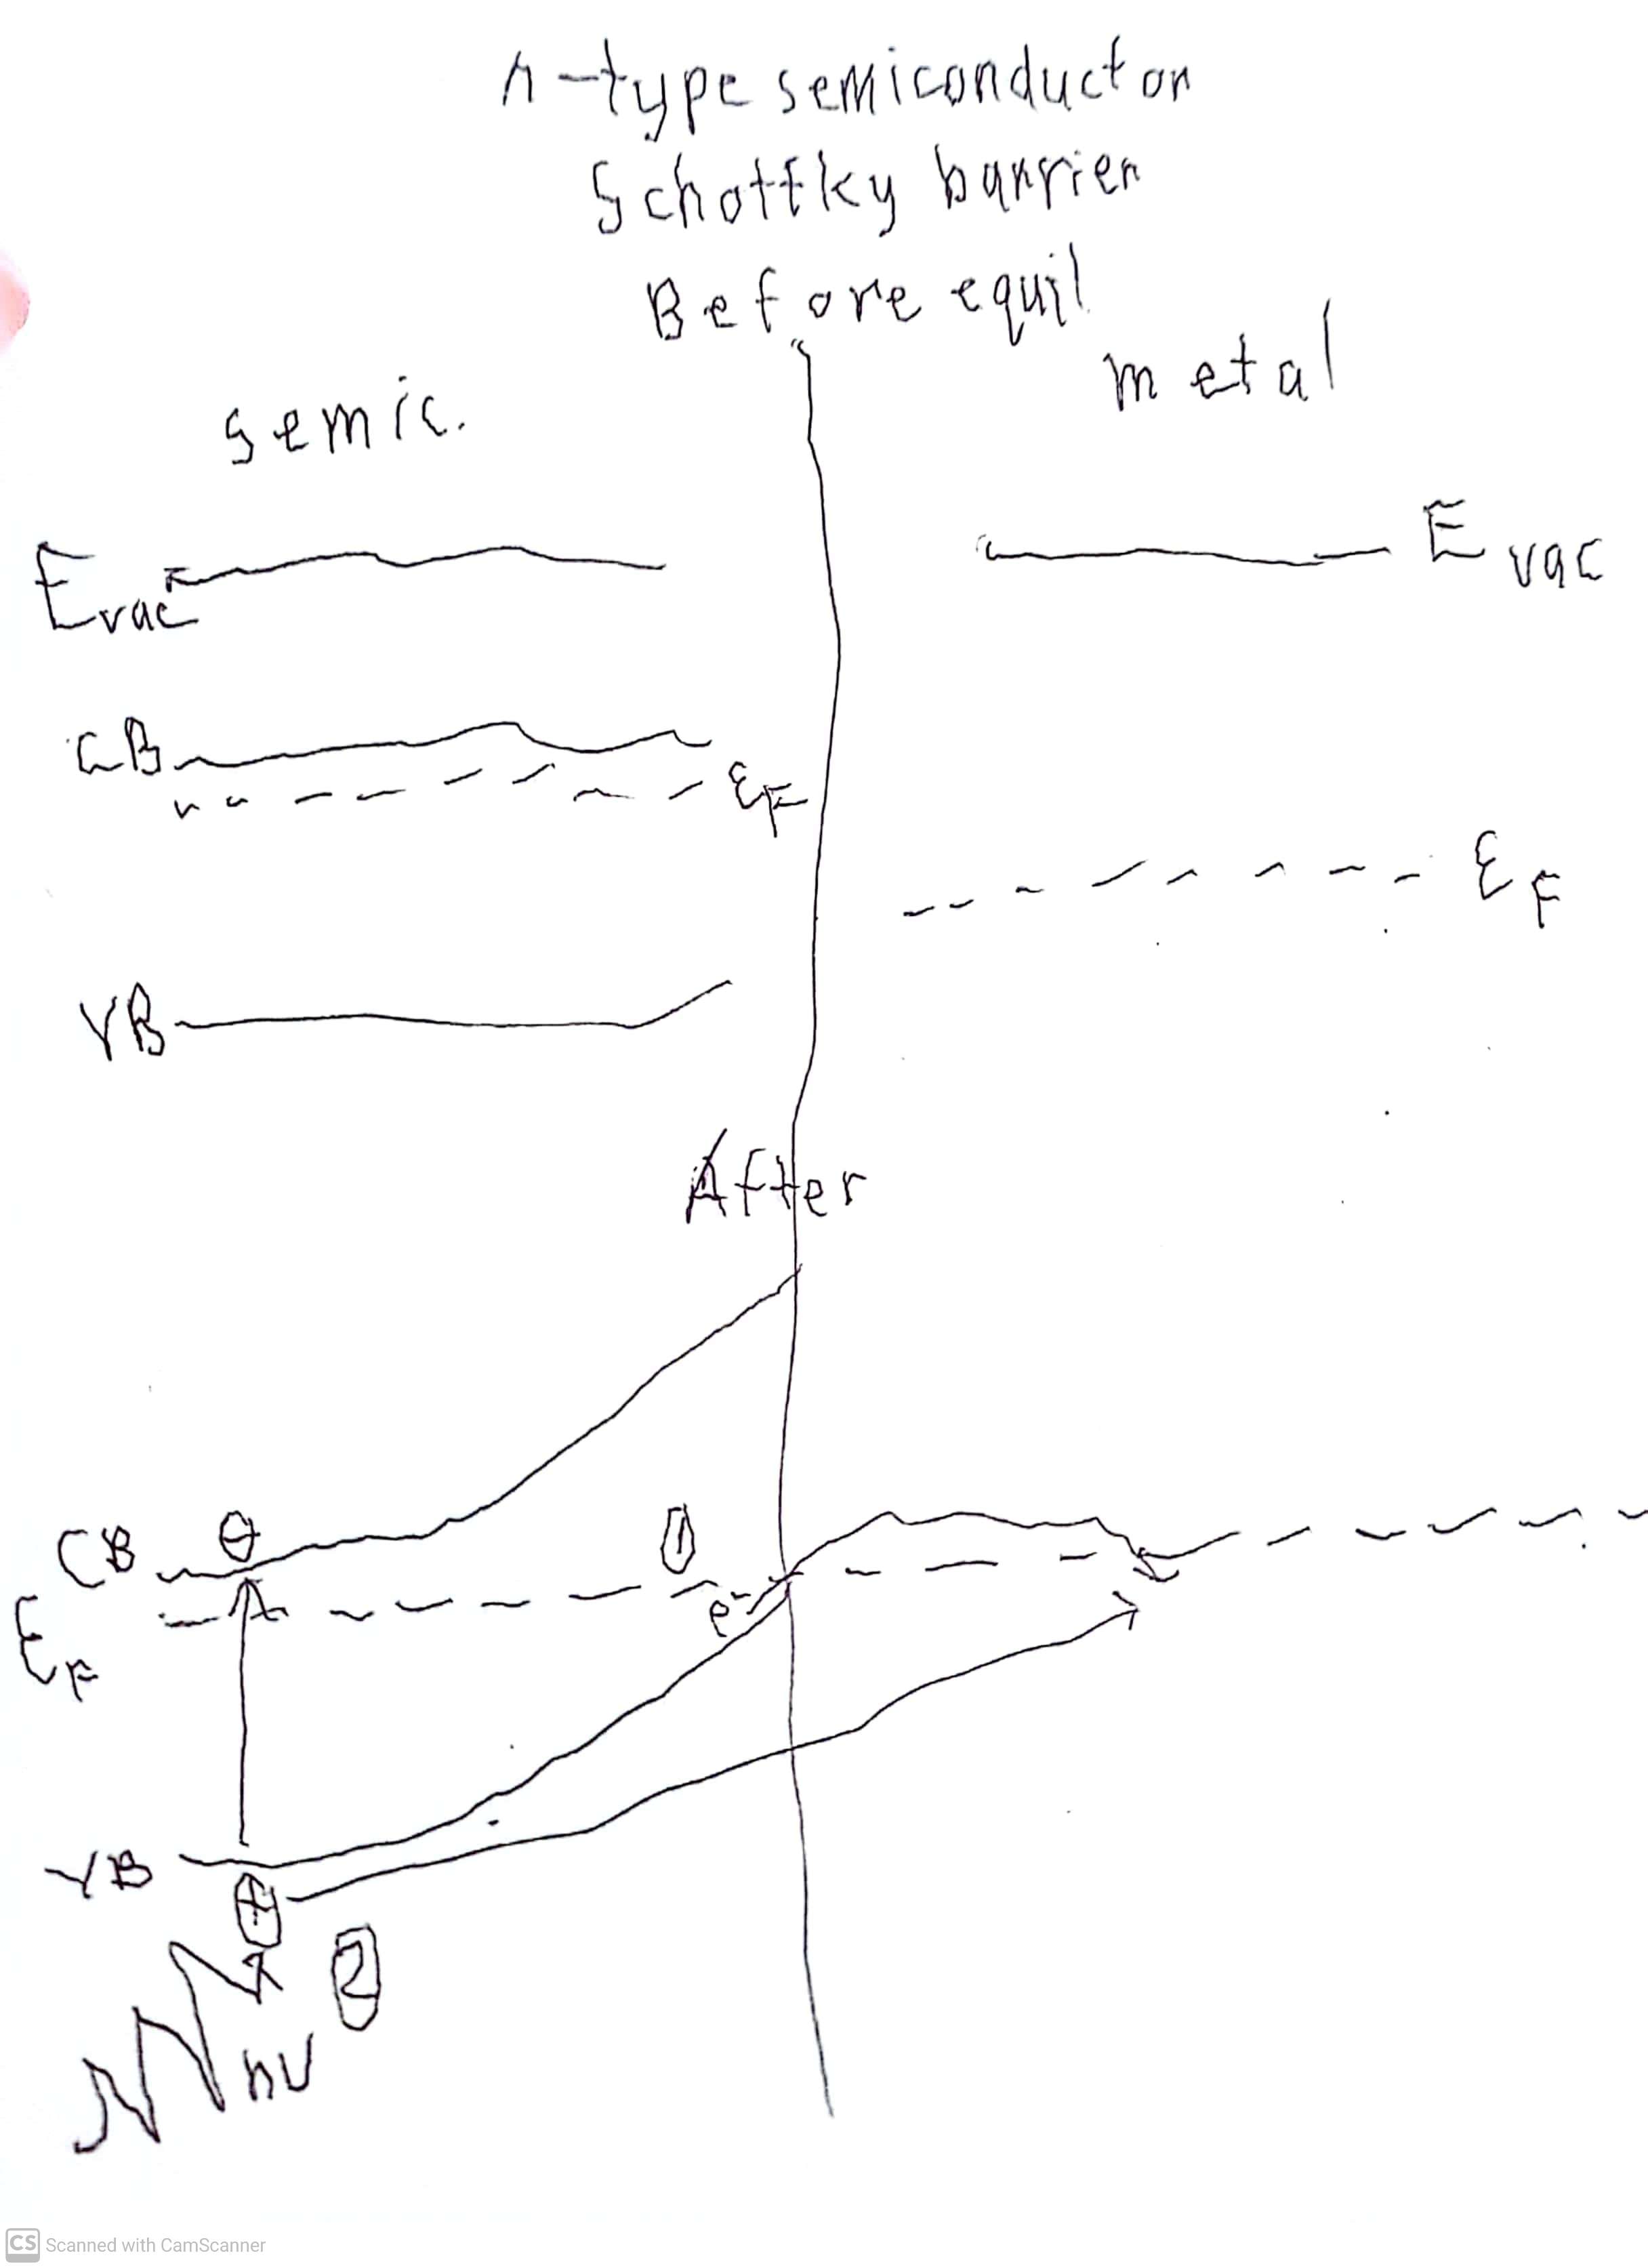 n-type semiconductor
Schottky barrier
Before equil.
metal
semic.
Evac
Evac
CB
EF
EF
VB
After
CB
1
EF
e-
VB
2
hν
CS Scanned with CamScanner